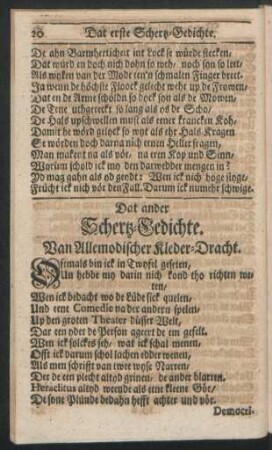 20 Dat erste Schertz-Gedichte.
De ahn Barmherticheit int Lock se würde stecken/
Dat würd en doch nich dohn so weh/ noch son so leet/
Als wyken van der Mode ten'n schmalen Finger breet.
Ja wenn de höchste Floock gelecht weht up de Frowen/
Dat en de Arme schölden so dock son als de Mowen/
De Tene uthgereckt so lang als os de Scho/
De Hals upschwellen must als erner krancken Koh/
Damit he wörd gelyck so wyt als ehr Hals-Kragen
Se wörden doch darna nich eenen Heller fragen/
Man makent na als vör/ na eren Kop und Sinn/
Worüm schald ick my den darwedder mengen in?
Yd mag gahn als yd geedt: Wen ick nich höge stoge/
Frücht ick nich vör den Fall. Darum ick numehr schwige.
Dat ander
Schertz-Gedichte.
Van Allemodischer Kleder-Dracht.
Oftmals bin ick in Twyfel geseten/
Un hebbe my darin nich kond tho richten we-
ten/
Wen ick bedacht wo de Lüde sick quelen/
Und eene Comedie na der andern spelen/
Up den groten Theater düsser Welt/
Dar een yder de Person ageert de em gefelt.
Wen ick solckes seh/ wat ick schal menen/
Offt ick darum schol lachen edder wenen/
Als men schrifft van twe wyse Narren/
Der de een plecht altyd grinen/ de ander blarren.
Heraclitus altyd weende als eene kleene Gör/
De sone Plünde bedahn hefft achter und vör.
Democri-